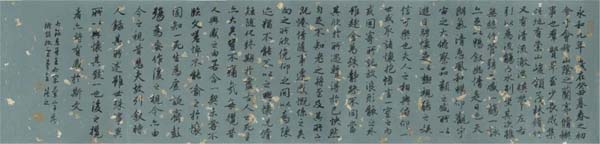 永和九年歲在癸丑暮春之初
會于會稽山陰之蘭亭脩禊
事也群賢畢至少長咸集
此地有崇山峻領茂林脩竹
又有清流激湍暎帶左右
引以為流觴曲水列坐其次
雖無絲竹管弦之盛一觴一詠
亦足以暢敘幽情是日也天
朗氣清惠風和暢仰觀宇
宙之大俯察品類之盛所以
遊目騁懷足以極視聽之娛
信可樂也夫人之相與俯仰一
世或取諸懷抱悟言一室之內
或因寄所託放浪形骸之外
雖趣舍萬殊靜躁不同當
其欣於所遇暫得於己快然
自足不知老之將至及其所
之既惓情隨事遷感慨係之矣向
之所欣俛仰之間以為陳
迹猶不能不以之興懷況脩
短隨化終期於盡古人云死生
亦大矣豈不痛哉每攬昔
人興感之由若合一契未嘗不
臨文嗟悼不能喻之於懷
固知一死生為虛誕齊彭
殤為妄作後之視今亦由
今之視昔悲夫故列敘時
人錄其所述雖世殊事異
所以興懷其致一也後之攬
者亦將有感於斯文